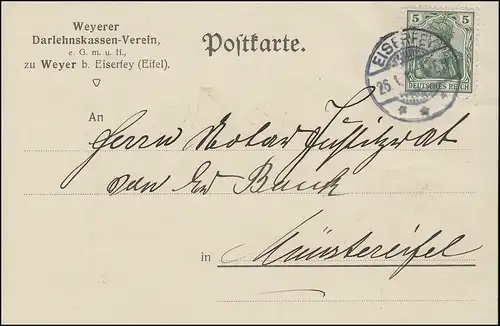 Weyerer
Darlehnskassen-Verein,
e. G. m. u. H.,
zu Weyer b. Eiserfey (Eifel).
Postkarte.
5 5
DEUTSCHES REICH
EISERFEY
26.1.
An
Herrn Notar Justizrat
van der Banck
in Münstereifel